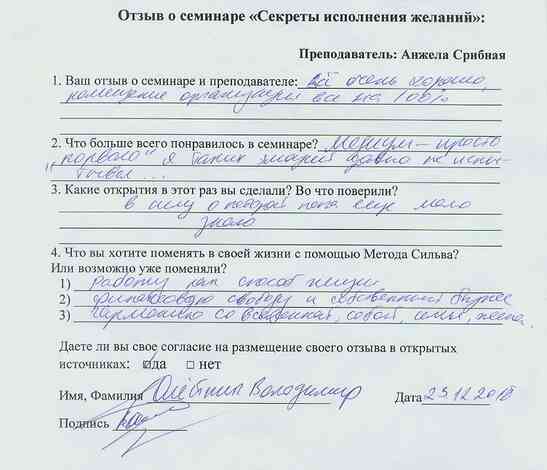 Отзыв о семинаре «Секреты исполнения желаний»:
Преподаватель: Анжела Срибная
1. Ваш отзыв о семинаре и преподавателе: Всё очень хорошо,
помещение организация все на 100%
2. Что больше всего понравилось в семинаре? просто
"порвало" я таких эмоций давно не испы-
3. Какие открытия в этот раз вы сделали? Во что поверили?
в силу о которой пока еще мало
знаю
4. Что вы хотите поменять в своей жизни с помощью Метода Сильва?
Или возможно уже поменяли?
1) работу как способ жизни
2) финансовую свободу и собственный бизнес
3) Гармонию со вселенной, собой, семьи,
Даете ли вы свое согласие на размещение своего отзыва в открытых
источниках: да нет
Имя, Фамилия Володимир
Дата 23.12.2010
Подпись